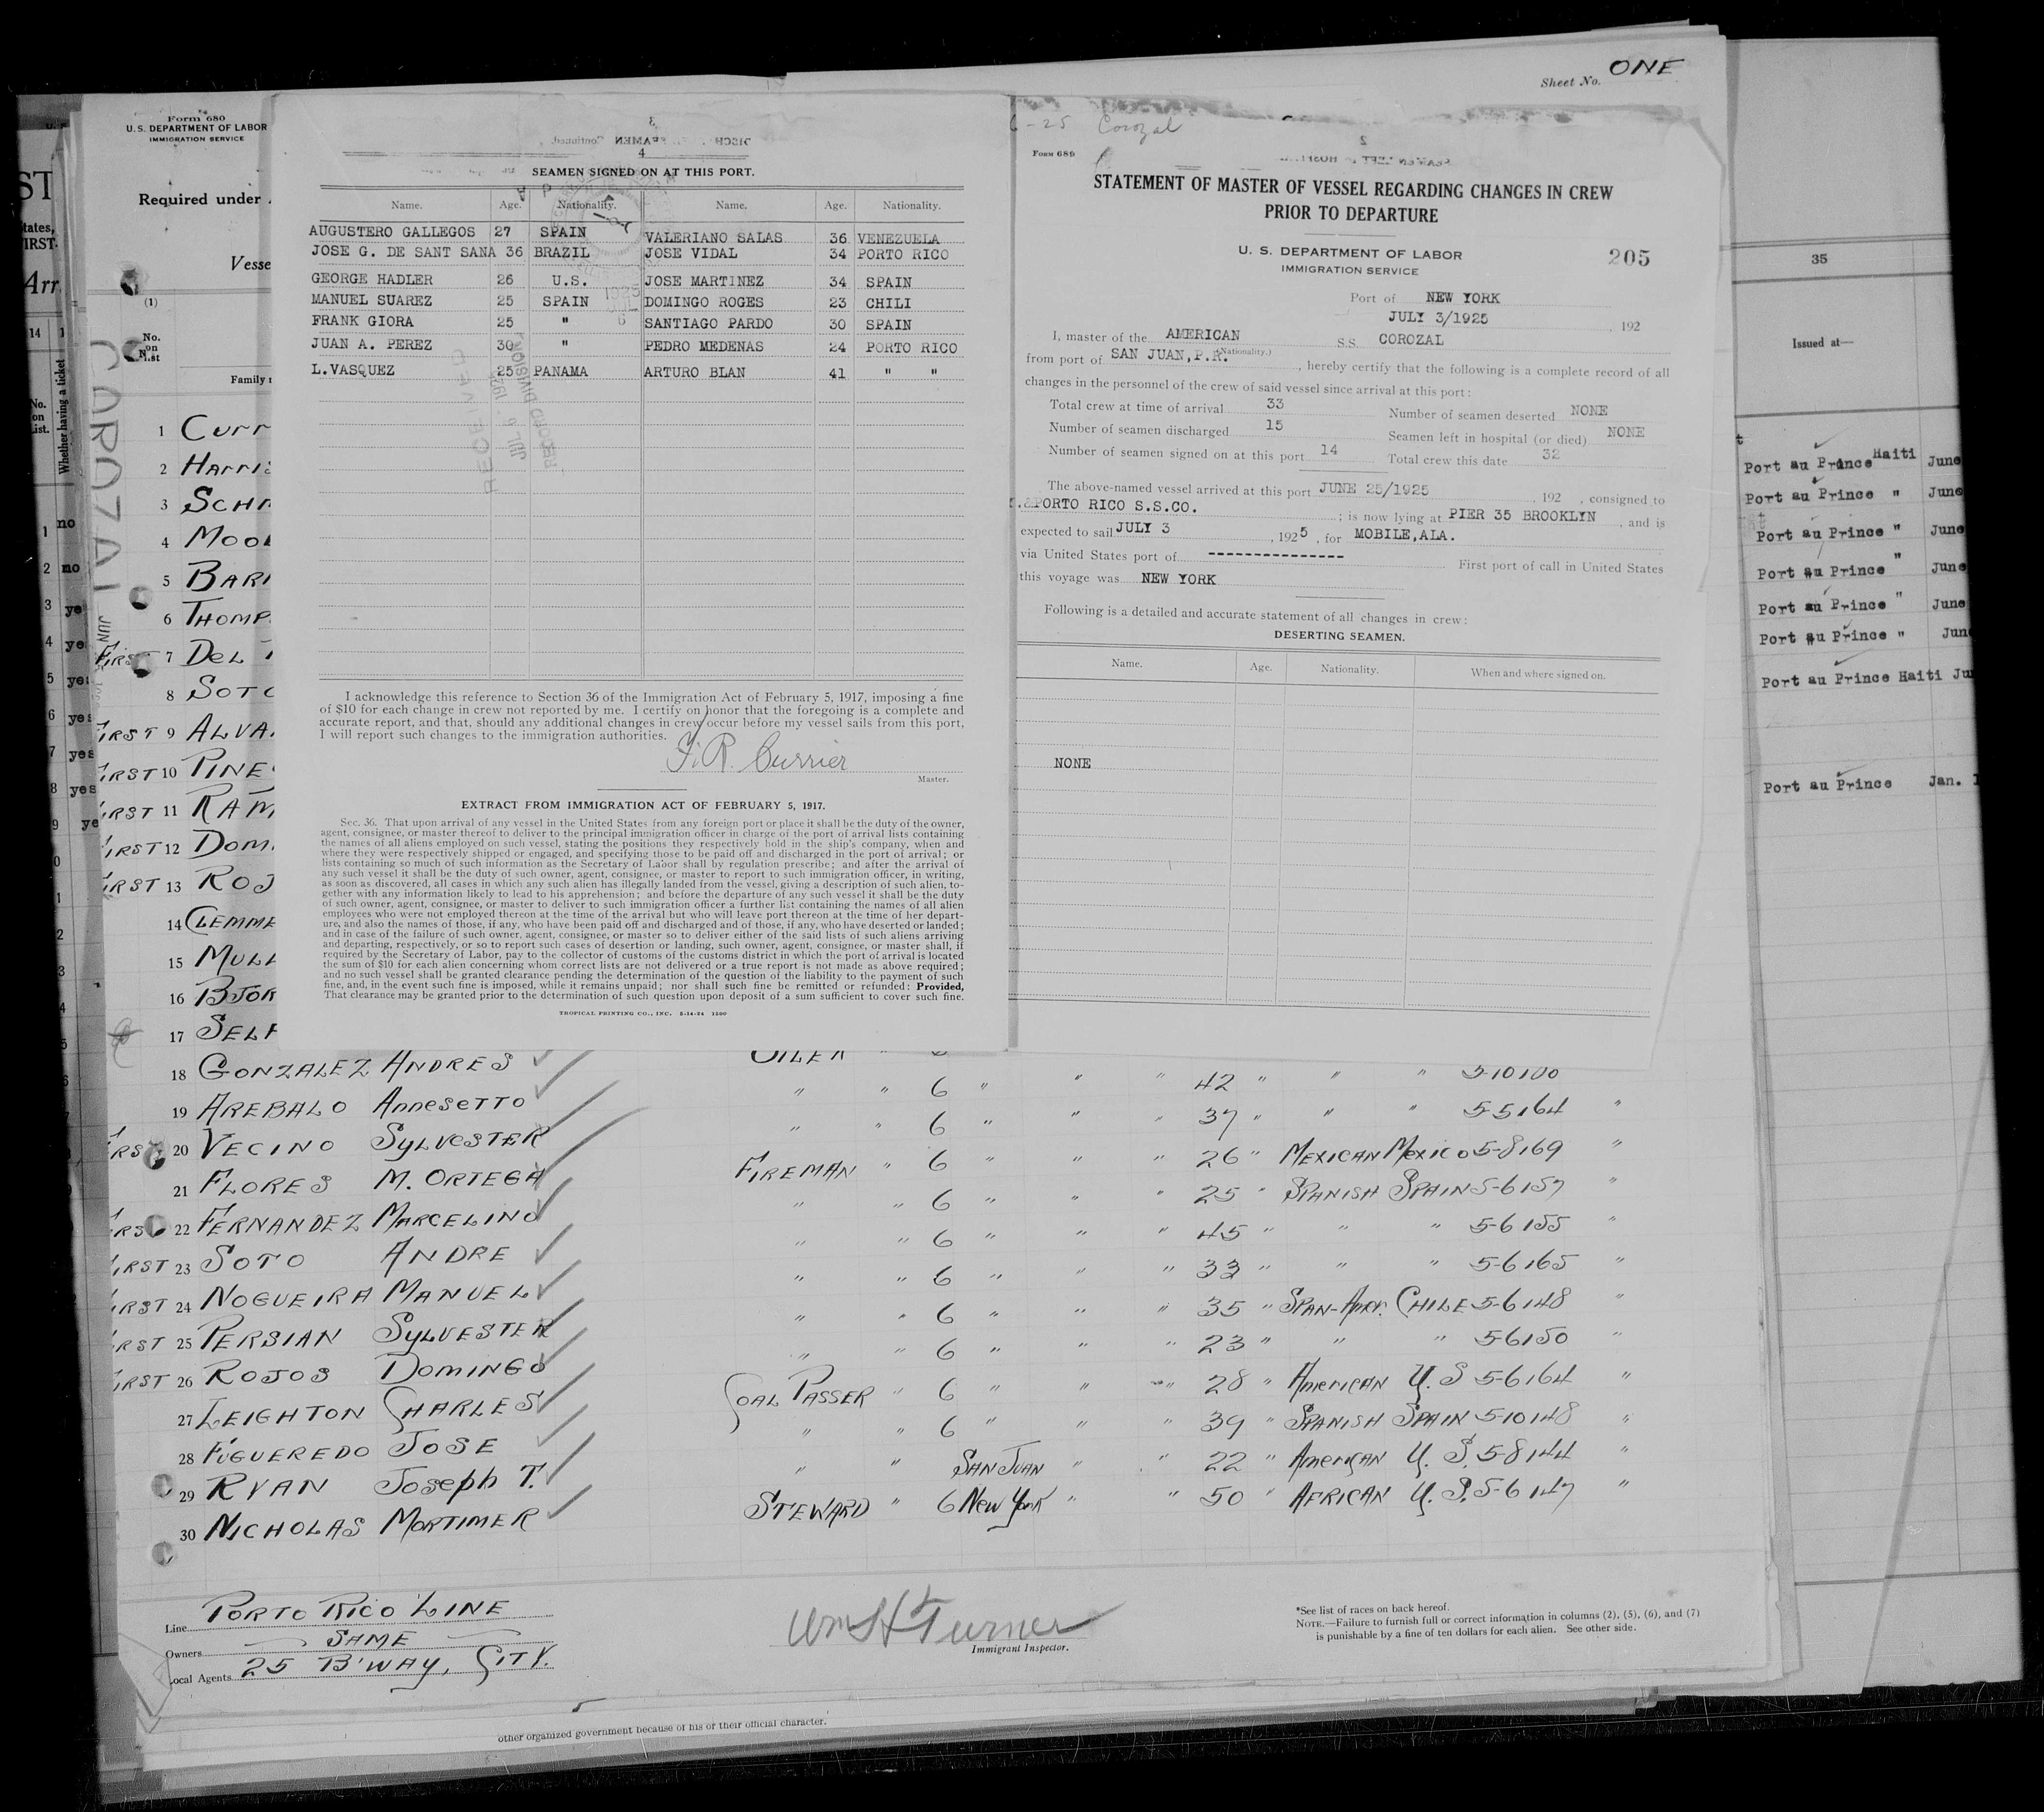 Sheet No. ONE
Form 680
U. S. DEPARTMENT OF LABOR
IMMIGRATION SERVICE
Required under
Vesse
(1)
No. on List
Family n
COROZAL
1 CURR
2 HARRIS
3 SCHA
4 MOOL
5 BARI
6 THOMP
FIRST 7 DEL
8 SOTO
FIRST 9 ALVA
FIRST 10 PINE
FIRST 11 RAM
FIRST 12 DOM
FIRST 13 ROJ
14 CLEMME
15 MULL
16 BJOR
17 SELF
4
SEAMEN SIGNED ON AT THIS PORT.
Name. Age. Nationality. Name. Age. Nationality.
AUGUSTERO GALLEGOS 27 SPAIN VALERIANO SALAS 36 VENEZUELA
JOSE G. DE SANT SANA 36 BRAZIL JOSE VIDAL 34 PORTO RICO
GEORGE HADLER 26 U.S. JOSE MARTINEZ 34 SPAIN
MANUEL SUAREZ 25 SPAIN DOMINGO ROGES 23 CHILI
FRANK GIORA 25 " SANTIAGO PARDO 30 SPAIN
JUAN A. PEREZ 30 " PEDRO MEDENAS 24 PORTO RICO
L.VASQUEZ 25 PANAMA ARTURO BLAN 41 " "
RECEIVED
JUL 6 1925
RECORD DIVISION
I acknowledge this reference to Section 36 of the Immigration Act of February 5, 1917, imposing a fine
of $10 for each change in crew not reported by me. I certify on honor that the foregoing is a complete and
accurate report, and that, should any additional changes in crew occur before my vessel sails from this port,
I will report such changes to the immigration authorities.
F. R. Currier
Master.
EXTRACT FROM IMMIGRATION ACT OF FEBRUARY 5, 1917.
Sec. 36. That upon arrival of any vessel in the United States from any foreign port or place it shall be the duty of the owner,
agent, consignee, or master thereof to deliver to the principal immigration officer in charge of the port of arrival lists containing
the names of all aliens employed on such vessel, stating the positions they respectively hold in the ship's company, when and
where they were respectively shipped or engaged, and specifying those to be paid off and discharged in the port of arrival; or
lists containing so much of such information as the Secretary of Labor shall by regulation prescribe; and after the arrival of
any such vessel it shall be the duty of such owner, agent, consignee, or master to report to such immigration officer, in writing,
as soon as discovered, all cases in which any such alien has illegally landed from the vessel, giving a description of such alien, to-
gether with any information likely to lead to his apprehension; and before the departure of any such vessel it shall be the duty
of such owner, agent, consignee, or master to deliver to such immigration officer a further list containing the names of all alien
employees who were not employed thereon at the time of the arrival but who will leave port thereon at the time of her depart-
ure, and also the names of those, if any, who have been paid off and discharged and of those, if any, who have deserted or landed;
and in case of the failure of such owner, agent, consignee, or master so to deliver either of the said lists of such aliens arriving
and departing, respectively, or so to report such cases of desertion or landing, such owner, agent, consignee, or master shall, if
required by the Secretary of Labor, pay to the collector of customs of the customs district in which the port of arrival is located
the sum of $10 for each alien concerning whom correct lists are not delivered or a true report is not made as above required;
and no such vessel shall be granted clearance pending the determination of the question of the liability to the payment of such
fine, and, in the event such fine is imposed, while it remains unpaid; nor shall such fine be remitted or refunded: Provided,
That clearance may be granted prior to the determination of such question upon deposit of a sum sufficient to cover such fine.
TROPICAL PRINTING CO., INC. 5-14-24 1500
-25 Corozal
FORM 689
STATEMENT OF MASTER OF VESSEL REGARDING CHANGES IN CREW
PRIOR TO DEPARTURE
U. S. DEPARTMENT OF LABOR
IMMIGRATION SERVICE
205
Port of NEW YORK
JULY 3/1925, 192
I, master of the AMERICAN S.S. COROZAL
(Nationality.)
from port of SAN JUAN,P.R., hereby certify that the following is a complete record of all
changes in the personnel of the crew of said vessel since arrival at this port:
Total crew at time of arrival 33 Number of seamen deserted NONE
Number of seamen discharged 15 Seamen left in hospital (or died) NONE
Number of seamen signed on at this port 14 Total crew this date 32
The above-named vessel arrived at this port JUNE 25/1925, 192 , consigned to
PORTO RICO S.S.CO. ; is now lying at PIER 35 BROOKLYN, and is
expected to sail JULY 3, 1925, for MOBILE,ALA.
via United States port of --------------- First port of call in United States
this voyage was NEW YORK
Following is a detailed and accurate statement of all changes in crew:
DESERTING SEAMEN.
Name. Age. Nationality. When and where signed on.
NONE
35
Issued at—
Port au Prince Haiti June
Port au Prince " June
Port au Prince " June
Port au Prince " June
Port au Prince " June
Port au Prince " June
Port au Prince Haiti Ju
Port au Prince Jan. 1
18 GONZALEZ ANDRES OILER
19 AREBALO ANNESETTO " " 6 " " " 42 " " " 5-10 160
FIRST 20 VECINO SYLVESTER " " 6 " " " 37 " " " 5-5 164 "
21 FLORES M. ORTEGA FIREMAN " 6 " " " 26 " MEXICAN MEXICO 5-8 169 "
FIRST 22 FERNANDEZ MARCELINO " " 6 " " " 25 " SPANISH SPAIN 5-6 157 "
FIRST 23 SOTO ANDRE " " 6 " " " 45 " " " 5-6 155 "
FIRST 24 NOGUEIRA MANUEL " " 6 " " " 33 " " " 5-6 165 "
FIRST 25 PERSIAN SYLVESTER " " 6 " " " 35 " SPAN-AMER. CHILE 5-6 148 "
FIRST 26 ROJOS DOMINGO " " 6 " " " 23 " " " 5-6 150 "
27 LEIGHTON CHARLES COAL PASSER " 6 " " " 28 " AMERICAN U.S 5-6 164 "
28 FUGUEREDO JOSE " " 6 " " " 39 " SPANISH SPAIN 5-10 148 "
29 RYAN JOSEPH T. " " SAN JUAN " " 22 " AMERICAN U.S. 5-8 144 "
30 NICHOLAS MORTIMER STEWARD " 6 NEW YORK " " 50 " AFRICAN U.S. 5-6 147 "
Line PORTO RICO LINE
Owners SAME
Local Agents 25 B'WAY, CITY.
Wm H Turner
Immigrant Inspector.
*See list of races on back hereof.
NOTE.—Failure to furnish full or correct information in columns (2), (5), (6), and (7)
is punishable by a fine of ten dollars for each alien. See other side.
other organized government because of his or their official character.